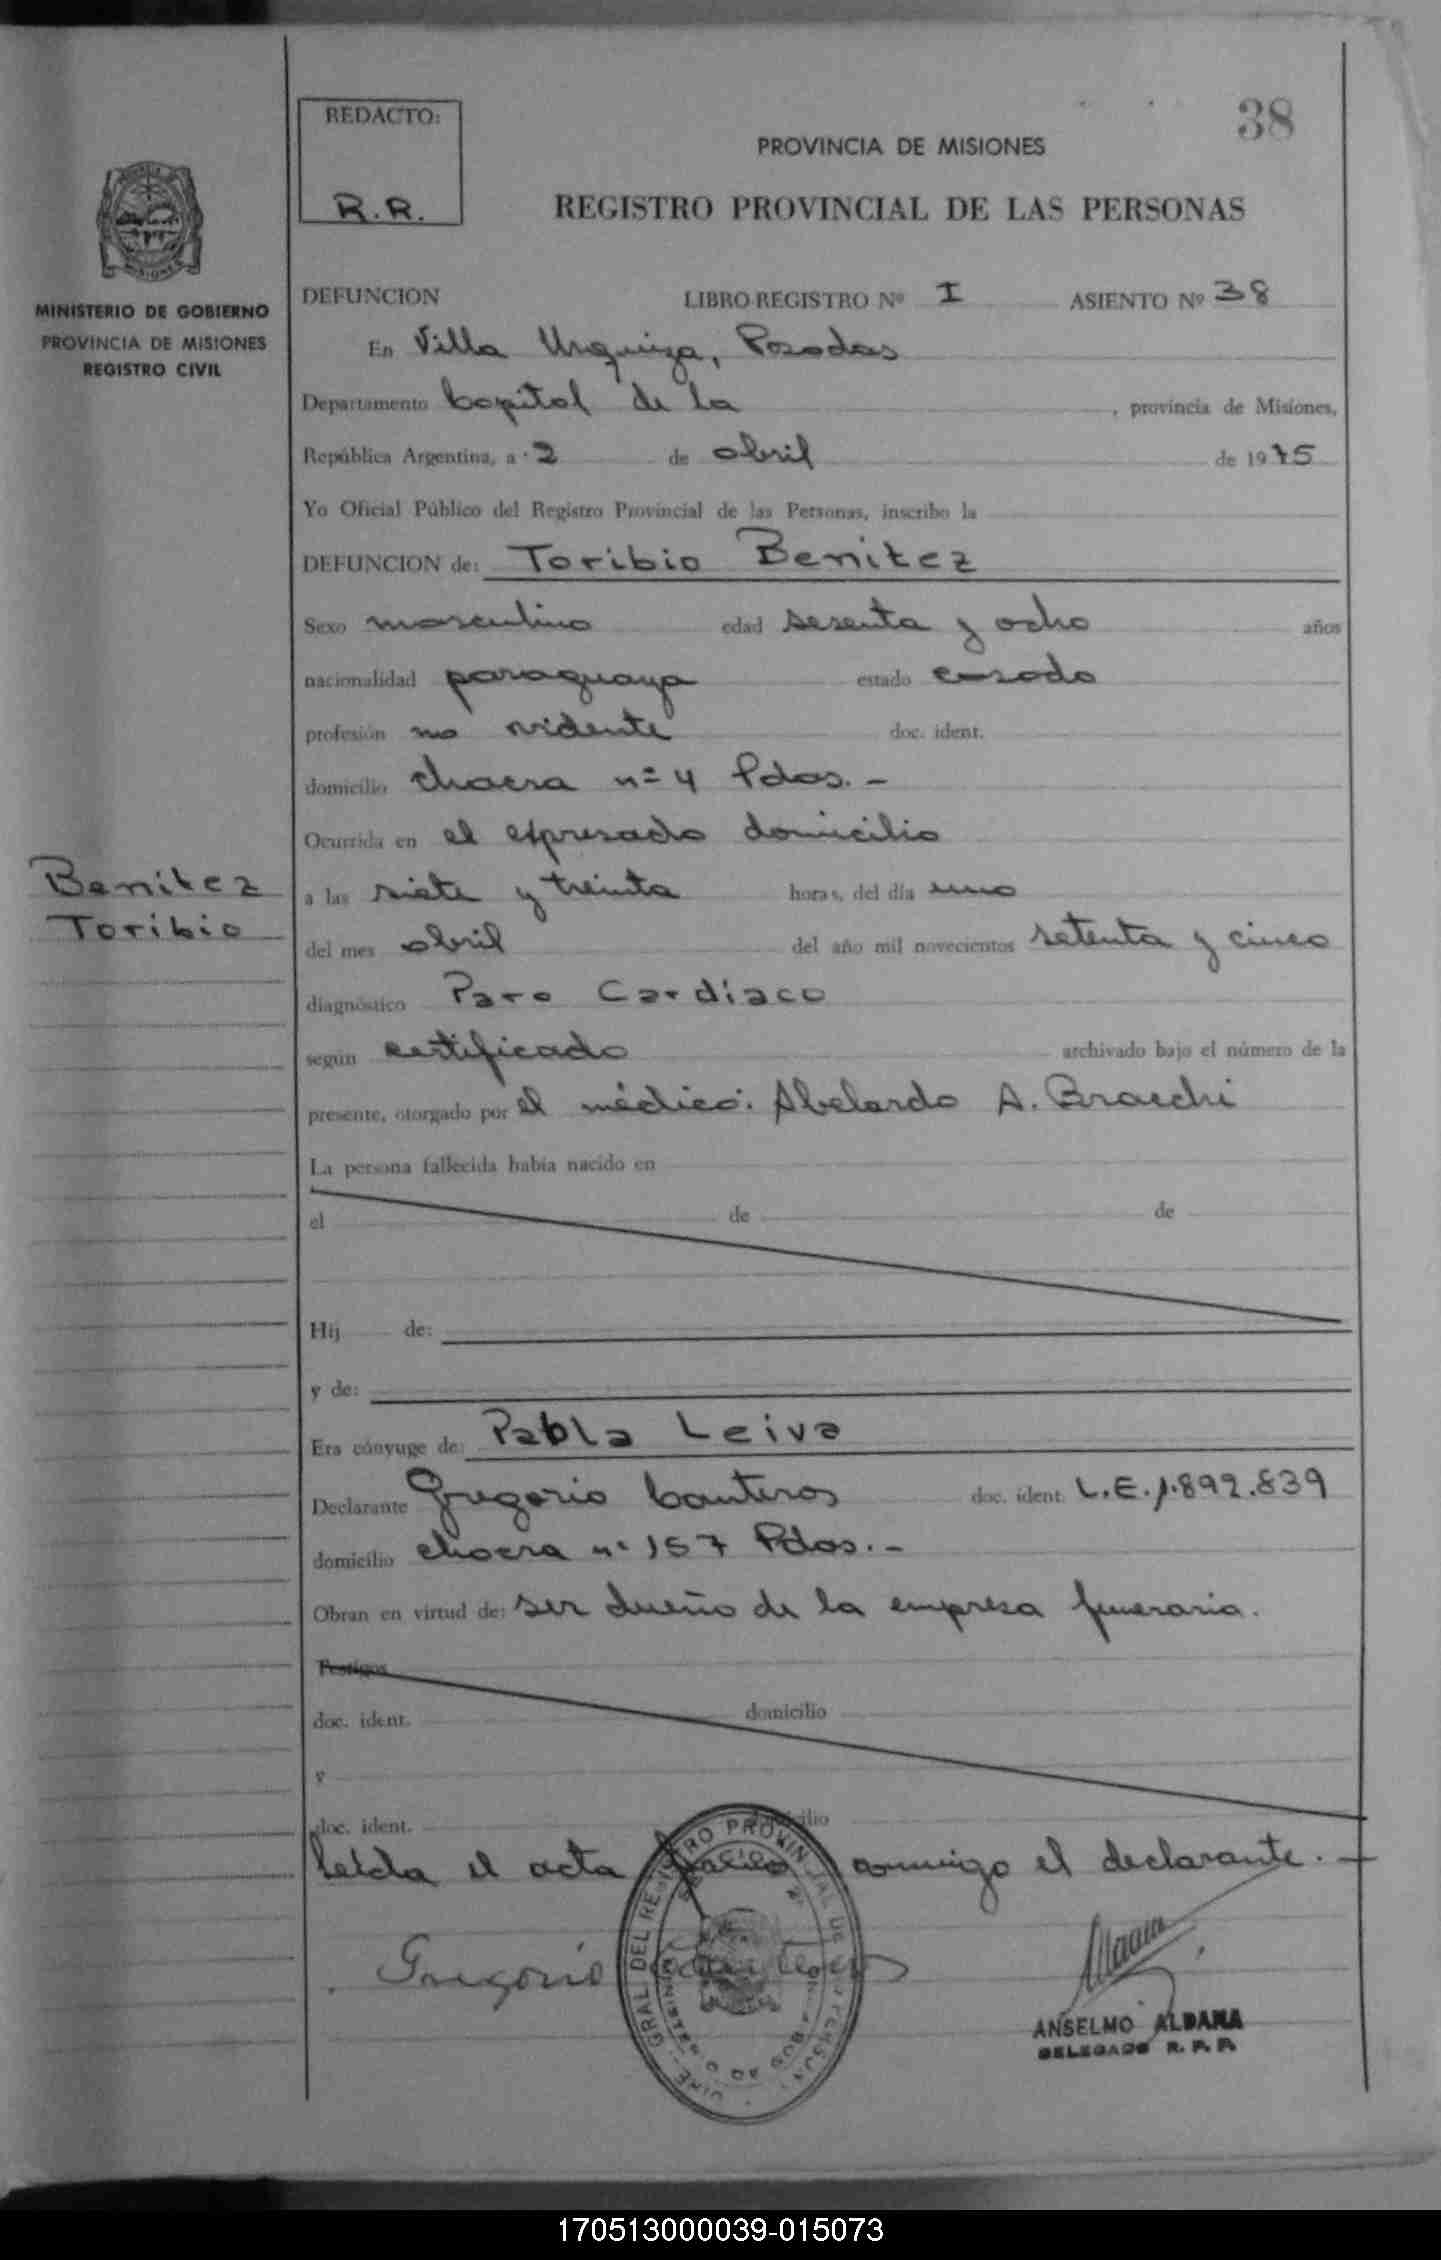 38
REDACTO:
R.R.
PROVINCIA DE MISIONES
REGISTRO PROVINCIAL DE LAS PERSONAS
MISIONES
MINISTERIO DE GOBIERNO
PROVINCIA DE MISIONES
REGISTRO CIVIL
DEFUNCION LIBRO REGISTRO Nº I ASIENTO Nº 38
En Villa Urquiza, Posadas
Departamento Capital de la , provincia de Misiones,
República Argentina, a 2 de abril de 1975
Yo Oficial Público del Registro Provincial de las Personas, inscribo la
DEFUNCION de: Toribio Benitez
Sexo masculino edad sesenta y ocho años
nacionalidad paraguaya estado casado
profesión no vidente doc. ident.
domicilio chacra nº 4 Pdas. -
Ocurrida en el expresado domicilio
Benitez
Toribio
a las siete y treinta horas, del día uno
del mes abril del año mil novecientos setenta y cinco
diagnóstico Paro Cardiaco
según certificado archivado bajo el número de la
presente, otorgado por el médico: Abelardo A. Bracchi
La persona fallecida había nacido en
el de de
Hij de:
y de:
Era cónyuge de: Pabla Leiva
Declarante Gregorio Canteros doc. ident. L.E. 1.892.839
domicilio chacra nº 157 Pdas. -
Obran en virtud de: ser dueño de la empresa funeraria.
Testigos
doc. ident. domicilio
y
doc. ident. domicilio
Leída el acta conmigo el declarante. -
Gregorio Canteros
ANSELMO ALDANA
DELEGADO R. P. P.
170513000039-015073